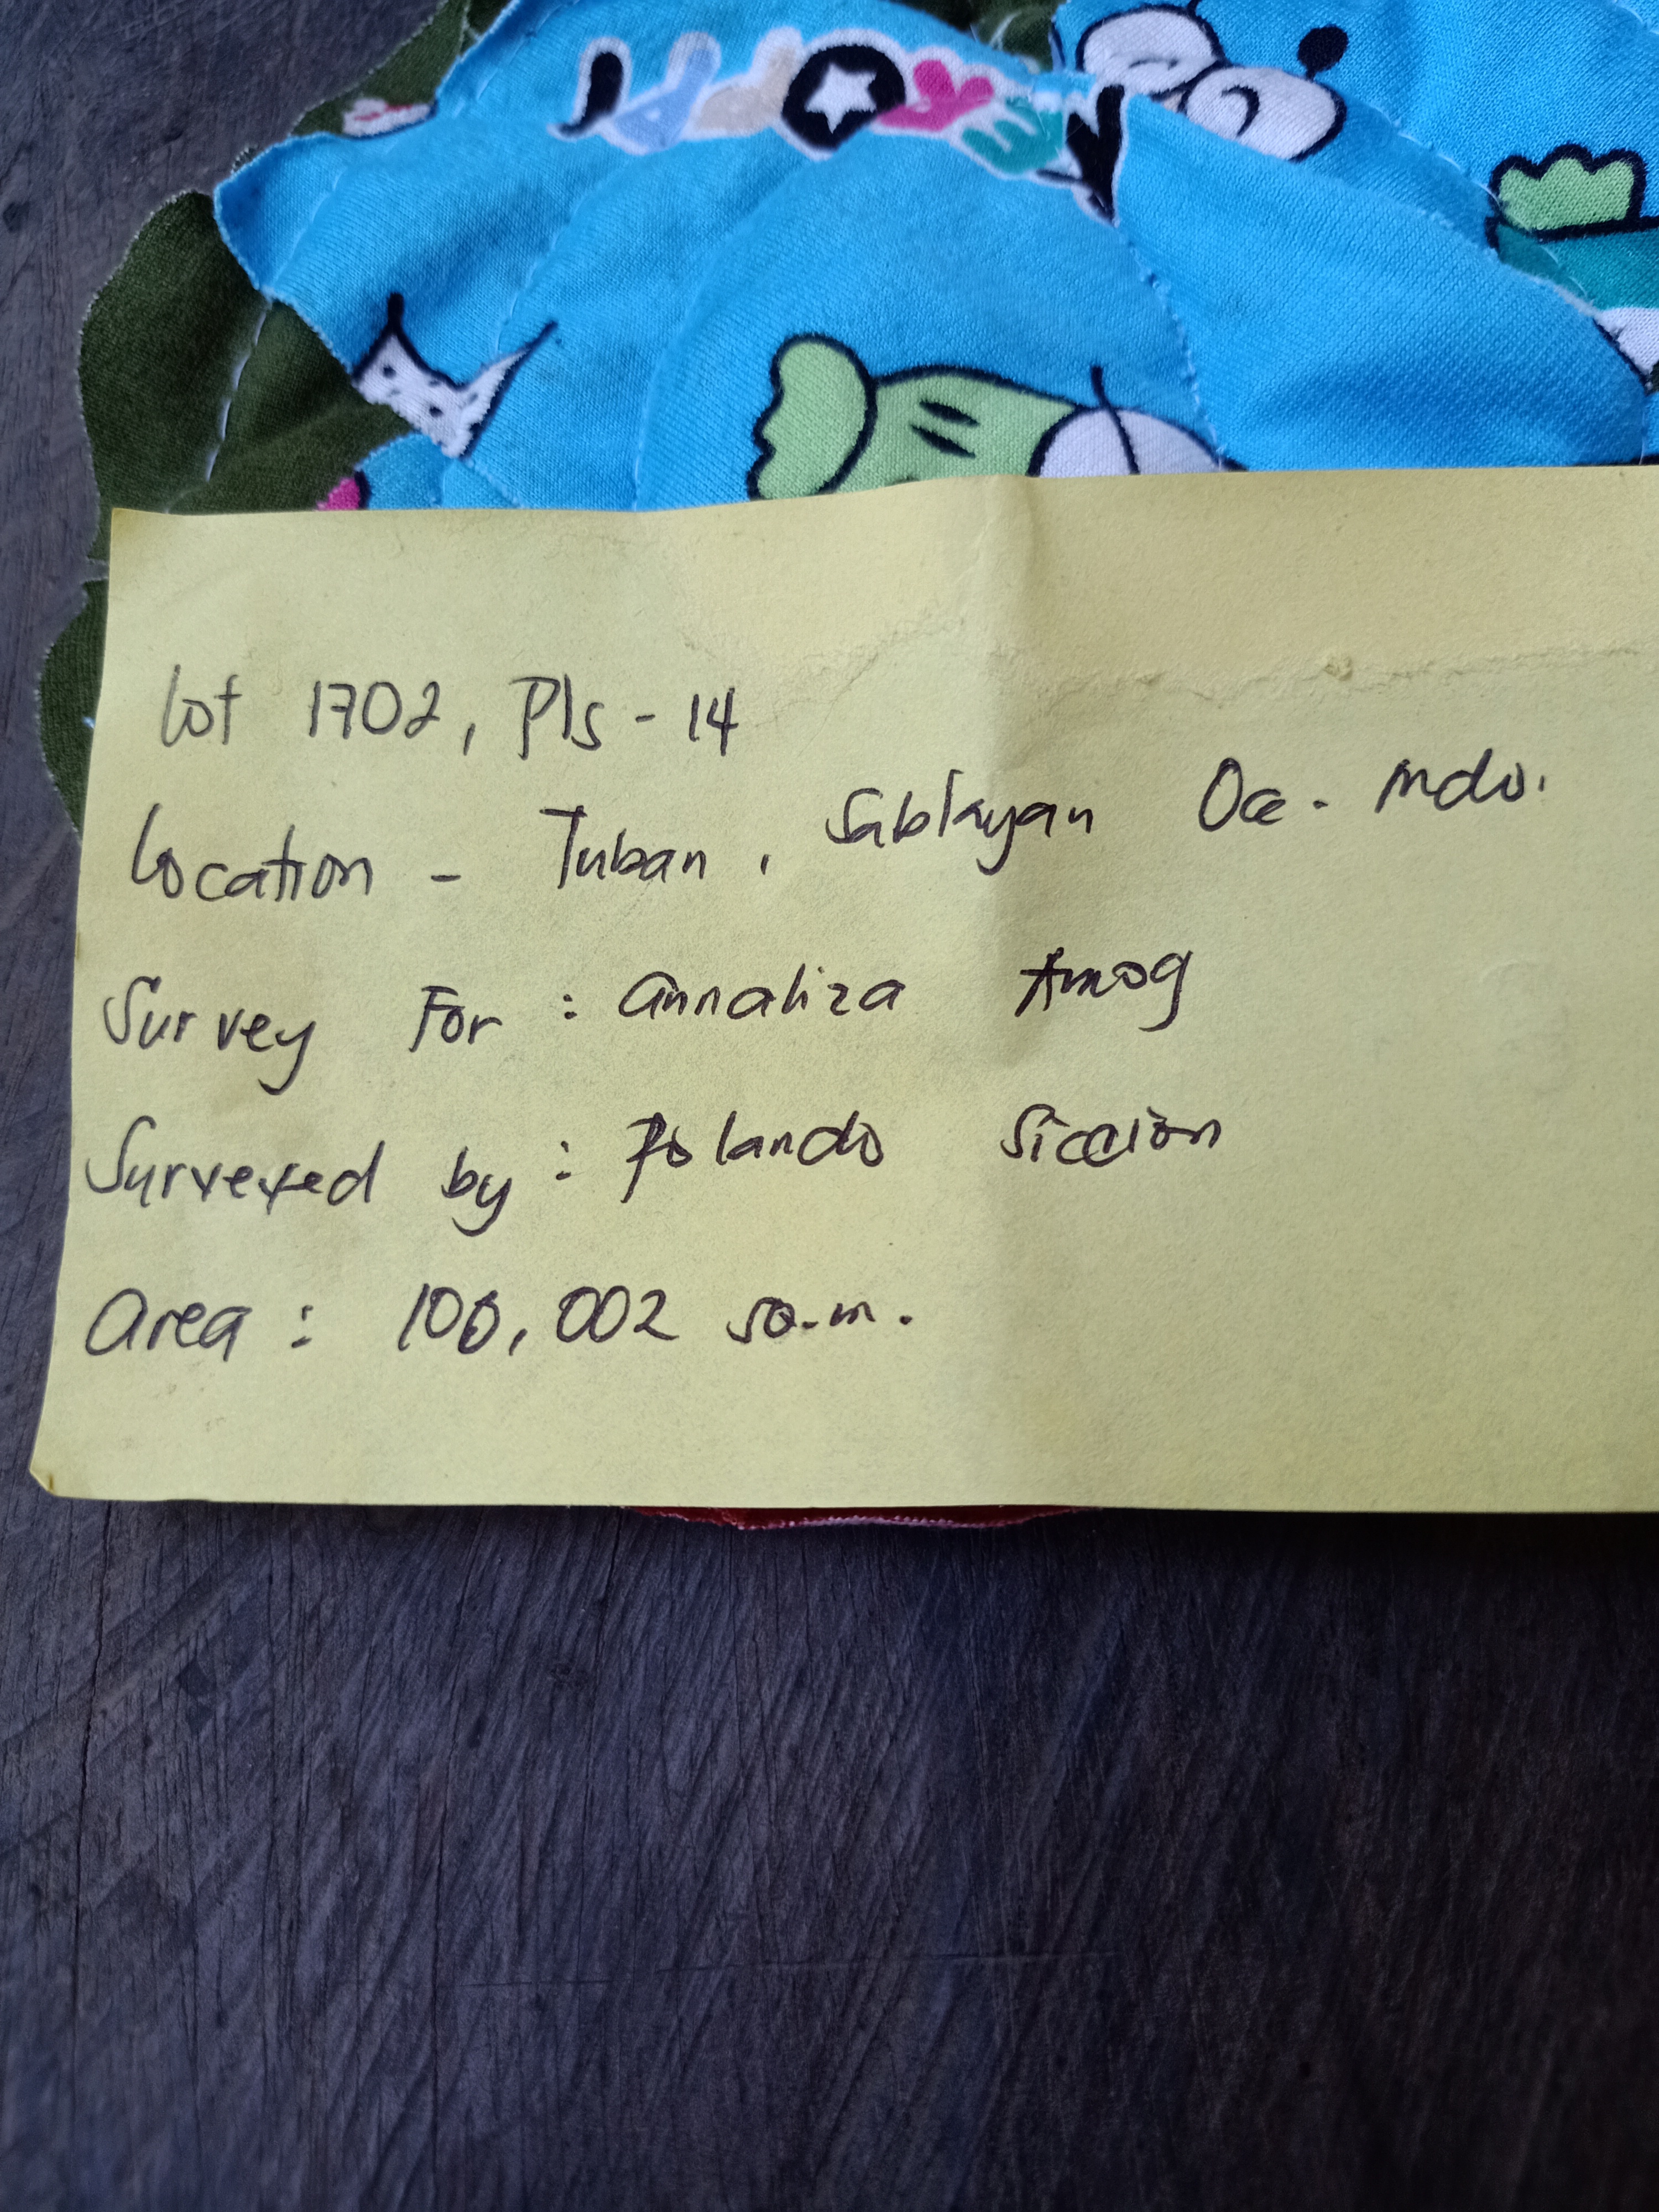 Lot 1702, Pls - 14
Location - Tuban, Sablayan Occ. Mdo.
Survey For : Annaliza Amog
Surveyed by : Rolando Siccion
Area : 100,002 sq.m.